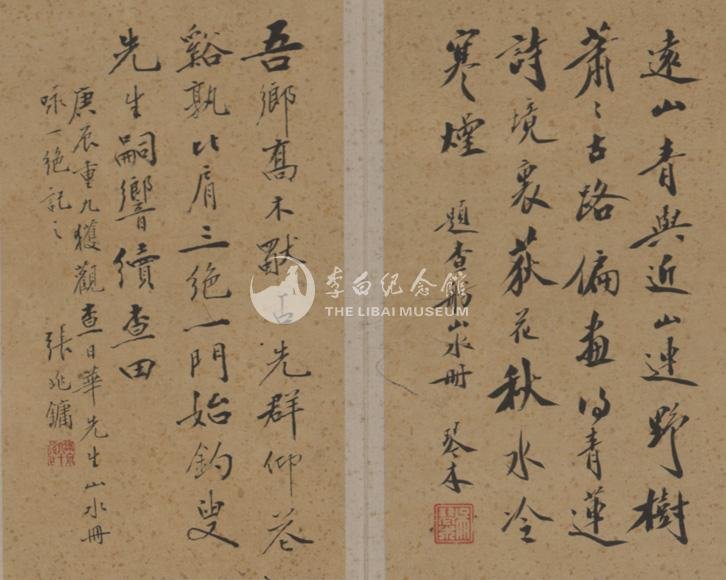 遠山青與近山連野樹
蕭〻古路偏畫得青蓮
詩境裏荻花秋水冷
寒煙
題查山水冊 琴木
吾鄉喬木占先群仰
谿孰比肩三絕一門始釣叟
先生嗣響續查田
庚辰重九獲觀查日華先生山水冊
咏一絕記之
張兆鏞
李白纪念馆
THE LIBAI MUSEUM